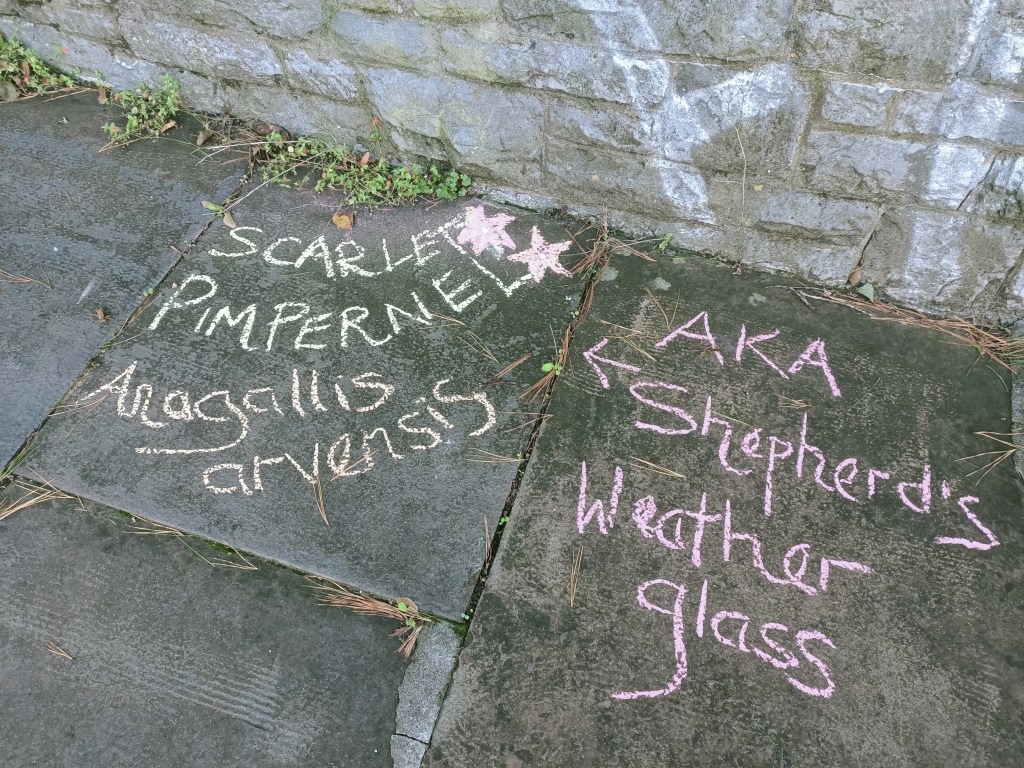 SCARLET
PIMPERNEL
Anagallis
arvensis
← AKA
Shepherd's
Weather
glass